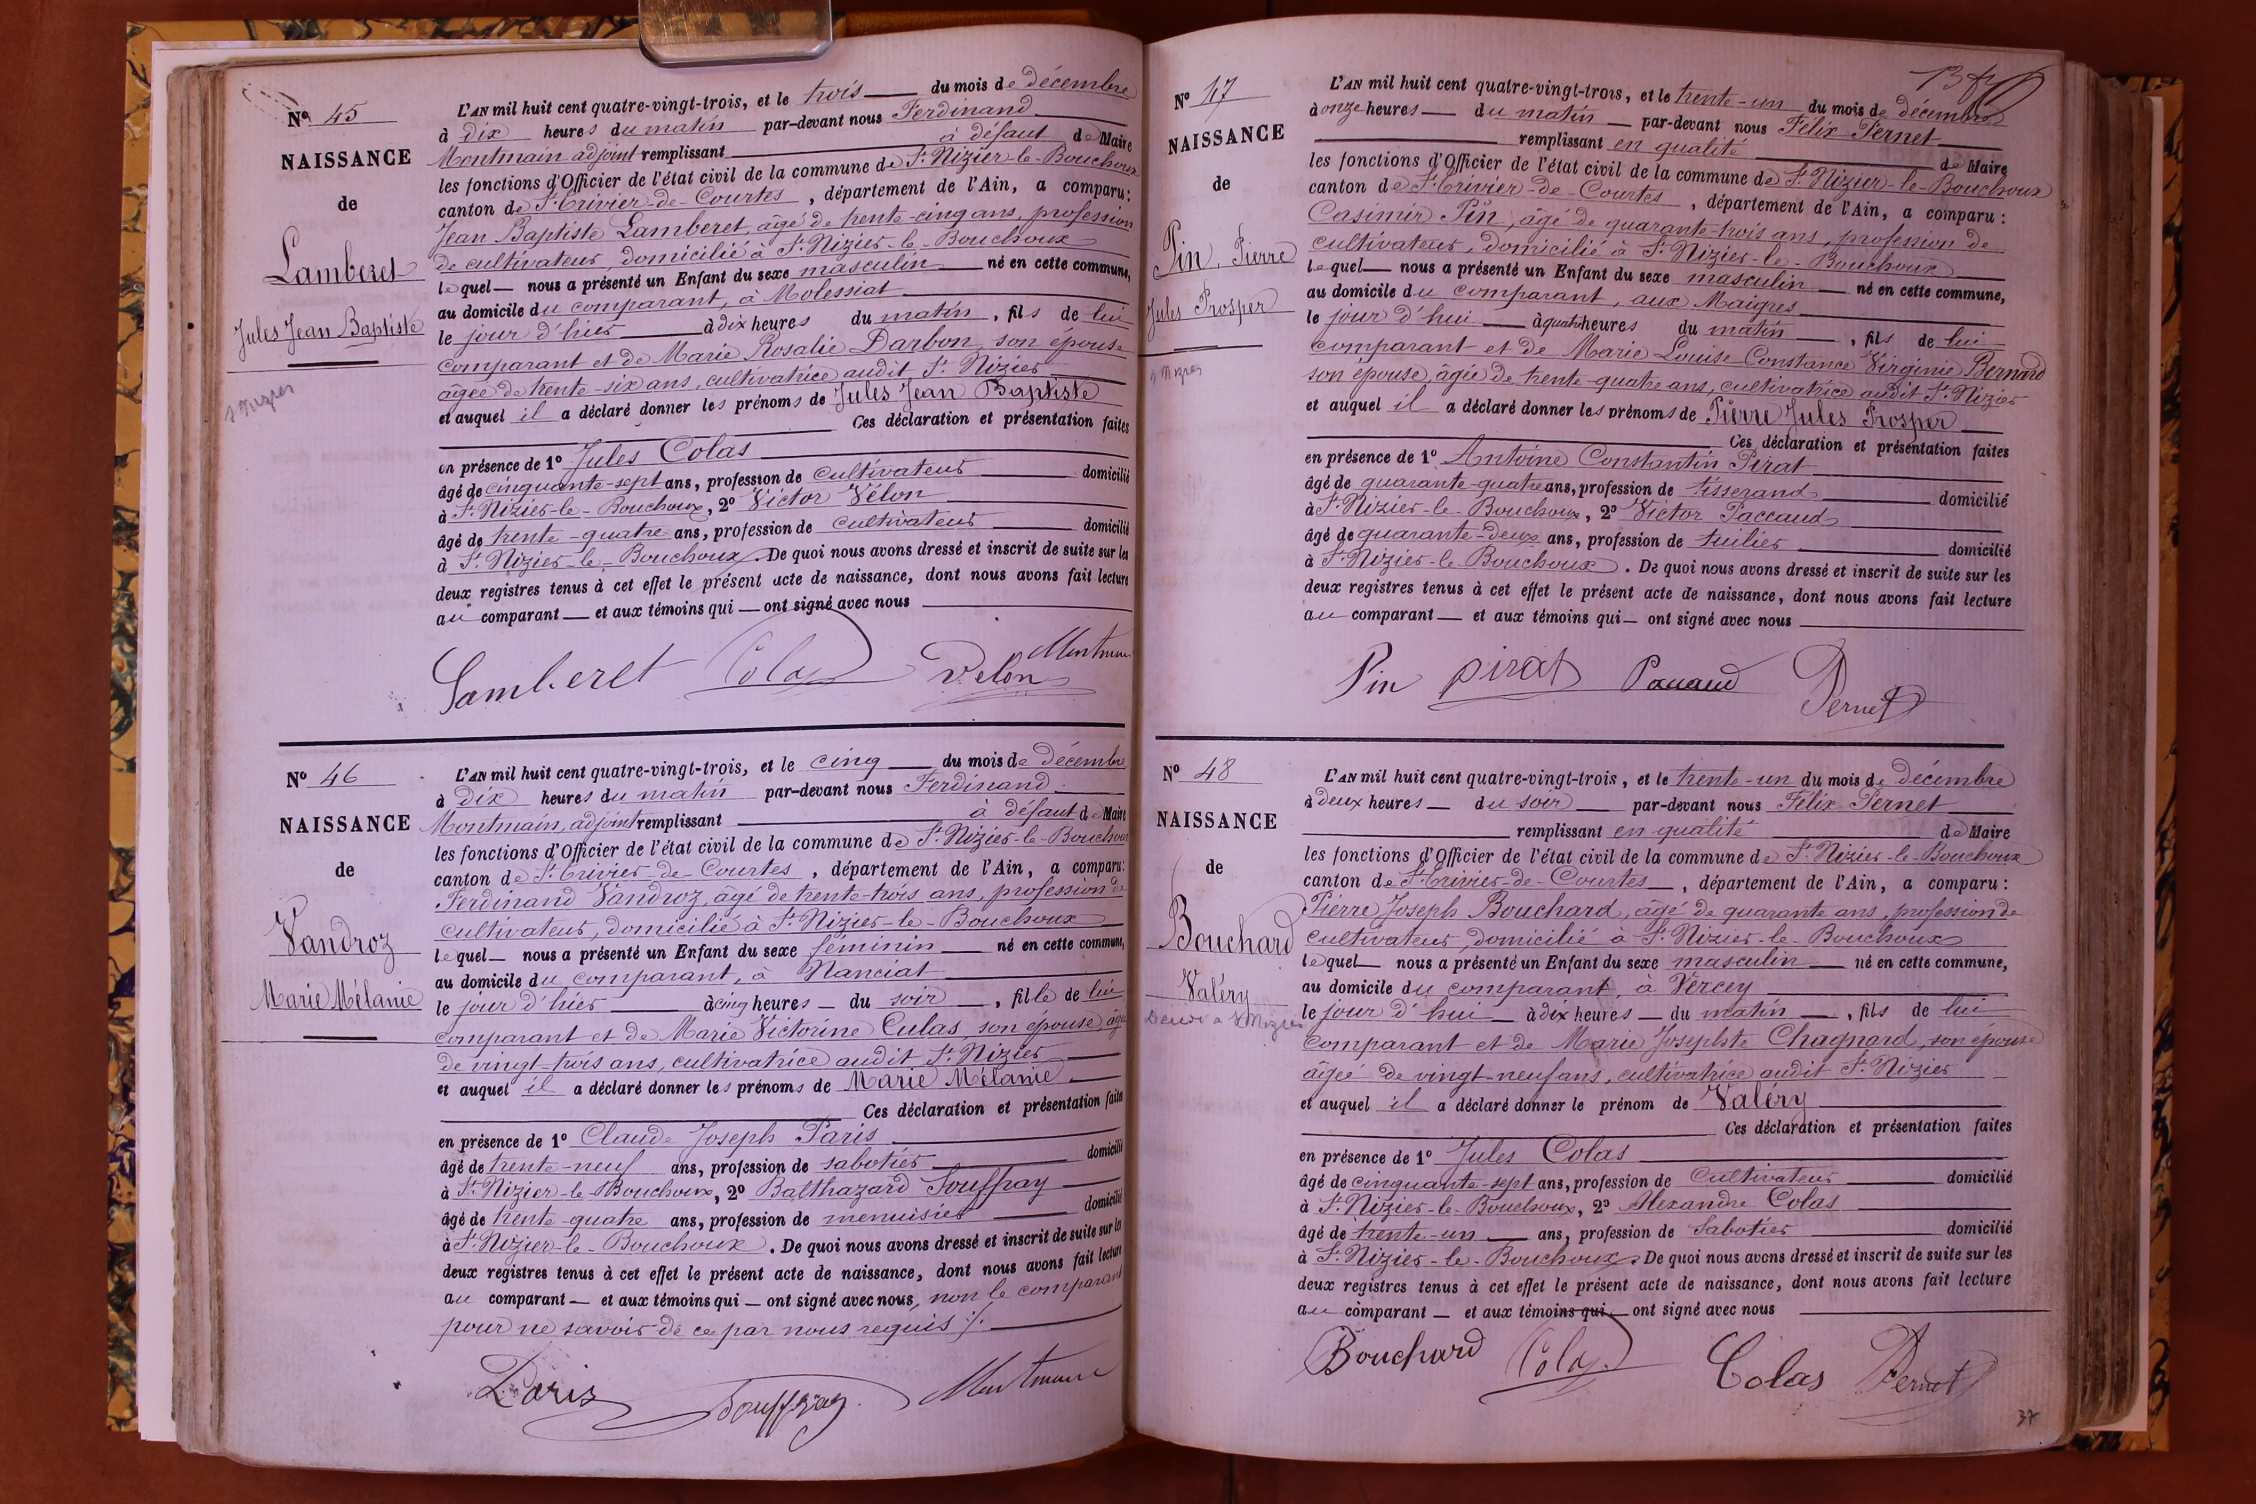 Nº 45
NAISSANCE
de
Lamberet
Jules Jean Baptiste
L'AN mil huit cent quatre-vingt-trois, et le trois du mois de décembre
à dix heures du matin par-devant nous Ferdinand
Montmain adjoint remplissant à défaut de Maire
les fonctions d'Officier de l'état civil de la commune de St Nizier-le-Bouchoux
canton de St Trivier-de-Courtes, département de l'Ain, a comparu:
Jean Baptiste Lamberet, âgé de trente-cinq ans, profession
de cultivateur domicilié à St Nizier-le-Bouchoux
lequel nous a présenté un Enfant du sexe masculin né en cette commune,
au domicile du comparant, à Molessiat
le jour d'hier à dix heures du matin, fils de lui
comparant et de Marie Rosalie Darbon, son épouse
âgée de trente-six ans, cultivatrice audit St Nizier
et auquel il a déclaré donner les prénoms de Jules Jean Baptiste
Ces déclaration et présentation faites
en présence de 1º Jules Colas
âgé de cinquante-sept ans, profession de cultivateur domicilié
à St Nizier-le-Bouchoux, 2º Victor Vélon
âgé de trente-quatre ans, profession de cultivateur domicilié
à St Nizier-le-Bouchoux. De quoi nous avons dressé et inscrit de suite sur les
deux registres tenus à cet effet le présent acte de naissance, dont nous avons fait lecture
au comparant et aux témoins qui ont signé avec nous
Lamberet Colas Velon Montmain
Nº 46
NAISSANCE
de
Vandroz
Marie Mélanie
L'AN mil huit cent quatre-vingt-trois, et le cinq du mois de décembre
à dix heures du matin par-devant nous Ferdinand
Montmain, adjoint remplissant à défaut de Maire
les fonctions d'Officier de l'état civil de la commune de St Nizier-le-Bouchoux
canton de St Trivier-de-Courtes, département de l'Ain, a comparu:
Ferdinand Vandroz, âgé de trente-trois ans, profession de
cultivateur, domicilié à St Nizier-le-Bouchoux
lequel nous a présenté un Enfant du sexe féminin né en cette commune,
au domicile du comparant, à Nanciat
le jour d'hier à cinq heures du soir, fille de lui
comparant et de Marie Victorine Culas, son épouse, âgée
de vingt-trois ans, cultivatrice audit St Nizier
et auquel il a déclaré donner les prénoms de Marie Mélanie
Ces déclaration et présentation faites
en présence de 1º Claude Joseph Paris
âgé de trente-neuf ans, profession de sabotier domicilié
à St Nizier-le-Bouchoux, 2º Balthazard Souffray
âgé de trente-quatre ans, profession de menuisier domicilié
à St Nizier-le-Bouchoux. De quoi nous avons dressé et inscrit de suite sur les
deux registres tenus à cet effet le présent acte de naissance, dont nous avons fait lecture
au comparant et aux témoins qui ont signé avec nous, non le comparant
pour ne savoir de ce par nous requis ./.
Paris Souffray Montmain
Nº 47
NAISSANCE
de
Pin, Pierre
Jules Prosper
L'AN mil huit cent quatre-vingt-trois, et le trente-un du mois de décembre
à onze heures du matin par-devant nous Félix Pernet
remplissant en qualité de Maire
les fonctions d'Officier de l'état civil de la commune de St Nizier-le-Bouchoux
canton de St Trivier-de-Courtes, département de l'Ain, a comparu:
Casimir Pin, âgé de quarante-trois ans, profession de
cultivateur, domicilié à St Nizier-le-Bouchoux
lequel nous a présenté un Enfant du sexe masculin né en cette commune,
au domicile du comparant, aux Maigres
le jour d'hui à quatre heures du matin, fils de lui
comparant et de Marie Louise Constance Virginie Bernard
son épouse, âgée de trente-quatre ans, cultivatrice audit St Nizier
et auquel il a déclaré donner les prénoms de Pierre Jules Prosper
Ces déclaration et présentation faites
en présence de 1º Antoine Constantin Pirat
âgé de quarante-quatre ans, profession de tisserand domicilié
à St Nizier-le-Bouchoux, 2º Victor Paccaud
âgé de quarante-deux ans, profession de tuilier domicilié
à St Nizier-le-Bouchoux. De quoi nous avons dressé et inscrit de suite sur les
deux registres tenus à cet effet le présent acte de naissance, dont nous avons fait lecture
au comparant et aux témoins qui ont signé avec nous
Pin pirat Paccaud Pernet
Nº 48
NAISSANCE
de
Bouchard
Valéry
L'AN mil huit cent quatre-vingt-trois, et le trente-un du mois de décembre
à deux heures du soir par-devant nous Félix Pernet
remplissant en qualité de Maire
les fonctions d'Officier de l'état civil de la commune de St Nizier-le-Bouchoux
canton de St Trivier-de-Courtes, département de l'Ain, a comparu:
Pierre Joseph Bouchard, âgé de quarante ans, profession de
cultivateur, domicilié à St Nizier-le-Bouchoux
lequel nous a présenté un Enfant du sexe masculin né en cette commune,
au domicile du comparant, à Vercey
le jour d'hui à dix heures du matin, fils de lui
comparant et de Marie Josephte Chagnard, son épouse
âgée de vingt-neuf ans, cultivatrice audit St Nizier
et auquel il a déclaré donner le prénom de Valéry
Ces déclaration et présentation faites
en présence de 1º Jules Colas
âgé de cinquante-sept ans, profession de Cultivateur domicilié
à St Nizier-le-Bouchoux, 2º Alexandre Colas
âgé de trente-un ans, profession de Sabotier domicilié
à St Nizier-le-Bouchoux. De quoi nous avons dressé et inscrit de suite sur les
deux registres tenus à cet effet le présent acte de naissance, dont nous avons fait lecture
au comparant et aux témoins qui ont signé avec nous
Bouchard Colas Colas Pernet
37